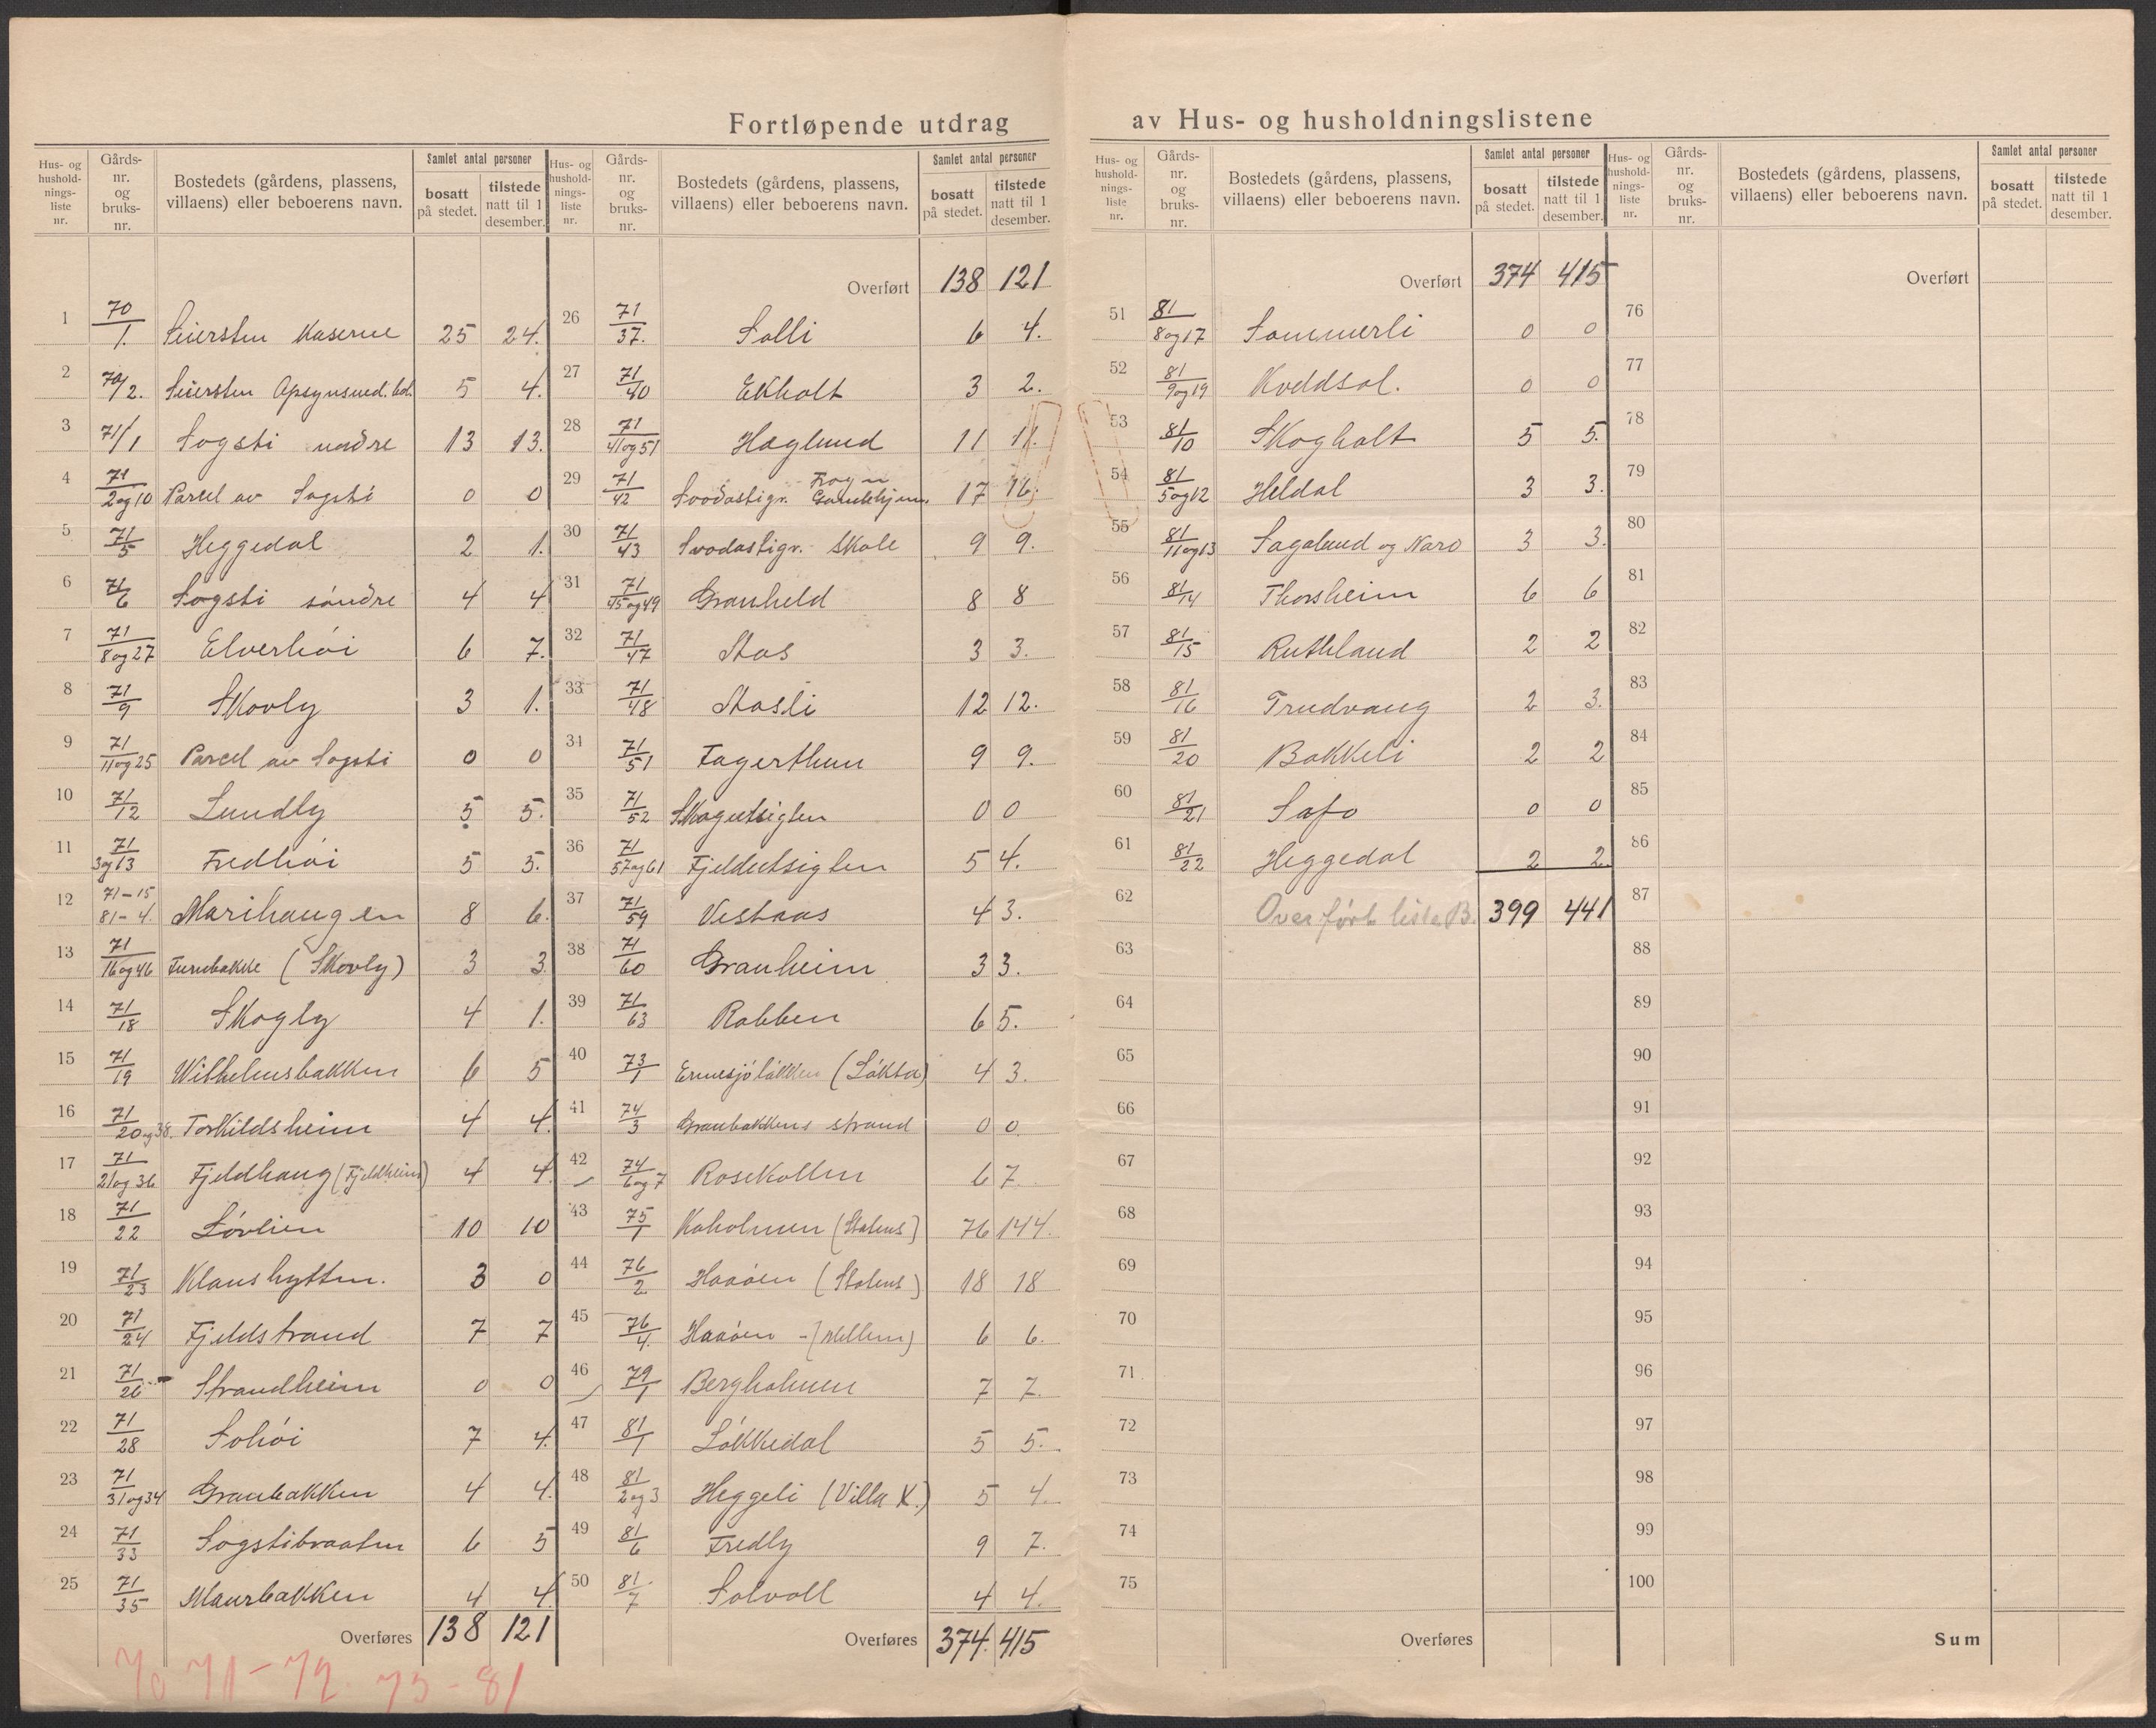 Fortløpende utdrag av Hus- og husholdningslistene
Hus- og hushold-nings-liste nr. | Gårds-nr. og bruks-nr. | Bostedets (gårdens, plassens, villaens) eller beboerens navn. | Samlet antal personer | bosatt på stedet. | tilstede natt til 1 desember.
1 70/1. Seiersten Kaserne 25 24.
2 70/2. Seiersten Opsynsmed. bol. 5 4.
3 71/1 Sogsti nordre 13 13.
4 71/2 og 10 Parcel av Sogsti 0 0
5 71/5 Heggedal 2 1.
6 71/6 Sogsti söndre 4 4
7 71/8 og 27 Elverhöi 6 7.
8 71/9 Skovly 3 1.
9 71/11 og 25 Parcel av Sogsti 0 0
10 71/12 Lundly 5 5.
11 71/3 og 13 Fredhöi 5 5.
12 71-15 81-4. Marihaugen 8 6.
13 71/16 og 46 Furubakke (Skovly) 3 3
14 71/18 Skogly 4 1.
15 71/19 Wilhelmsbakken 6 5
16 71/20 og 38. Torkildsheim 4 4.
17 71/21 og 36 Fjeldhaug (Fjeldheim) 4 4.
18 71/22 Lövlien 10 10
19 71/23 Klaushytten. 3 0
20 71/24 Fjeldstrand 7 7
21 71/26 Strandheim 0 0
22 71/28 Solhöi 7 4.
23 71/31 og 34 Granbakken 4 4.
24 71/33 Sogstibraaten 6 5
25 71/35 Maurbakken 4 4.
Overføres 138 121
70 71-72. 73-81
Overført 138 121
26 71/37. Solli 6 4.
27 71/40 Ekholt 3 2.
28 71/41 og 51 Haglund 11 11.
29 71/42 Frogn Gamlehjem. 17 16.
30 71/43 Skole 9 9.
31 71/45 og 49 Granheld 8 8
32 71/47 Aas 3 3.
33 71/48 Aasli 12 12.
34 71/51 Fagerthun 9 9.
35 71/52 Skogutsigten 0 0
36 71/57 og 61 Fjeldutsigten 5 4.
37 71/59 Vestaas 4 3.
38 71/60 Granheim 3 3.
39 71/63 Rabben 6 5.
40 73/1 (Løkta) 4 3.
41 74/3 Granbakkens strand 0 0
42 74/6 og 7 Rosekollen 6 7.
43 75/1 Kaholmen (Statens) 76 144.
44 76/2 Haaöen (Statens) 18 18
45 76/4. Haaöen 6 6.
46 79/1 Bergholmen 7 7.
47 81/1 Lökkedal 5 5.
48 81/2 og 3 Heggeli (Villa X.) 5 4.
49 81/6 Fredly 9 7.
50 81/7 Solvoll 4 4.
Overføres 374. 415
Overført 374 415
51 81/8 og 17 Sommerli 0 0
52 81/9 og 19 Kveldsol. 0 0
53 81/10 Skogholt 5 5.
54 81/5 og 12 Heldal 3 3.
55 81/11 og 13 Sagalund og Naro 3 3.
56 81/14 Thorsheim 6 6
57 81/15 Ruthland 2 2
58 81/16 Trudvang 2 3.
59 81/20 Bakkeli 2 2
60 81/21 Safo 0 0
61 81/22 Heggedal 2 2.
62 Overført liste B. 399 441
63
64
65
66
67
68
69
70
71
72
73
74
75
Overføres
Overført
76
77
78
79
80
81
82
83
84
85
86
87
88
89
90
91
92
93
94
95
96
97
98
99
100
Sum